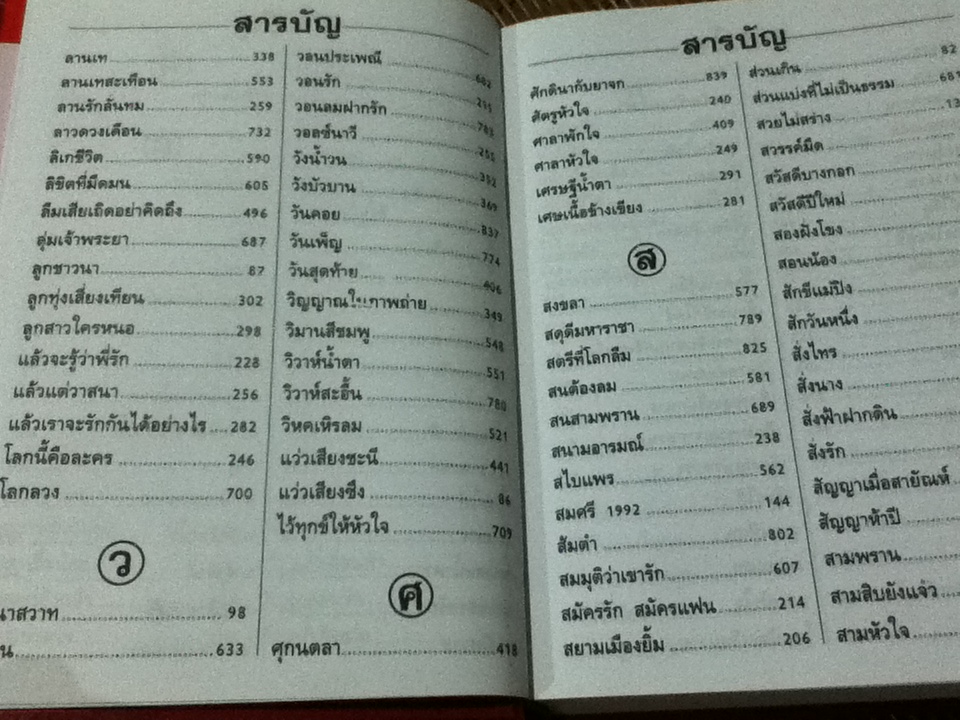 สารบัญ
ลานเท 338
ลานเทสะเทือน 553
ลานรักลั่นทม 259
ลาวดวงเดือน 732
ลิเกชีวิต 590
ลิขิตที่มืดมน 605
ลืมเสียเถิดอย่าคิดถึง 496
ลุ่มเจ้าพระยา 687
ลูกชาวนา 87
ลูกทุ่งเสี่ยงเทียน 302
ลูกสาวใครหนอ 298
แล้วจะรู้ว่าพี่รัก 228
แล้วแต่วาสนา 256
แล้วเราจะรักกันได้อย่างไร 282
โลกนี้คือละคร 246
โลกลวง 700
ว
าสวาท 98
น 633
วอนประเพณี 682
วอนรัก
วอนลมฝากรัก 783
วอลซ์นาวี
วังน้ำวน 352
วังบัวบาน 369
วันคอย 837
วันเพ็ญ 774
วันสุดท้าย 406
วิญญาณในภาพถ่าย 349
วิมานสีชมพู 548
วิวาห์น้ำตา 551
วิวาห์สะอื้น 780
วิหคเหิรลม 521
แว่วเสียงชะนี 441
แว่วเสียงซึง 86
ไว้ทุกข์ให้หัวใจ 709
ศ
ศุกนตลา 418
สารบัญ
ศักดินากับยาจก 839
ศัตรูหัวใจ 240
ศาลาพักใจ 409
ศาลาหัวใจ 249
เศรษฐีน้ำตา 291
เศษเนื้อข้างเขียง 281
ส
สงขลา 577
สดุดีมหาราชา 789
สตรีที่โลกลืม 825
สนต้องลม 581
สนสามพราน 689
สนามอารมณ์ 238
สไบแพร 562
สมศรี 1992 144
ส้มตำ 802
สมมุติว่าเขารัก 607
สมัครรัก สมัครแฟน 214
สยามเมืองยิ้ม 206
ส่วนเกิน 82
ส่วนแบ่งที่ไม่เป็นธรรม 681
สวยไม่สร่าง 13
สวรรค์มืด
สวัสดีบางกอก
สวัสดีปีใหม่
สองฝั่งโขง
สอนน้อง
สักขีแม่ปิง
สักวันหนึ่ง
สั่งไทร
สั่งนาง
สั่งฟ้าฝากดิน
สั่งรัก
สัญญาเมื่อสายัณห์
สัญญาห้าปี
สามพราน
สามสิบยังแจ๋ว
สามหัวใจ